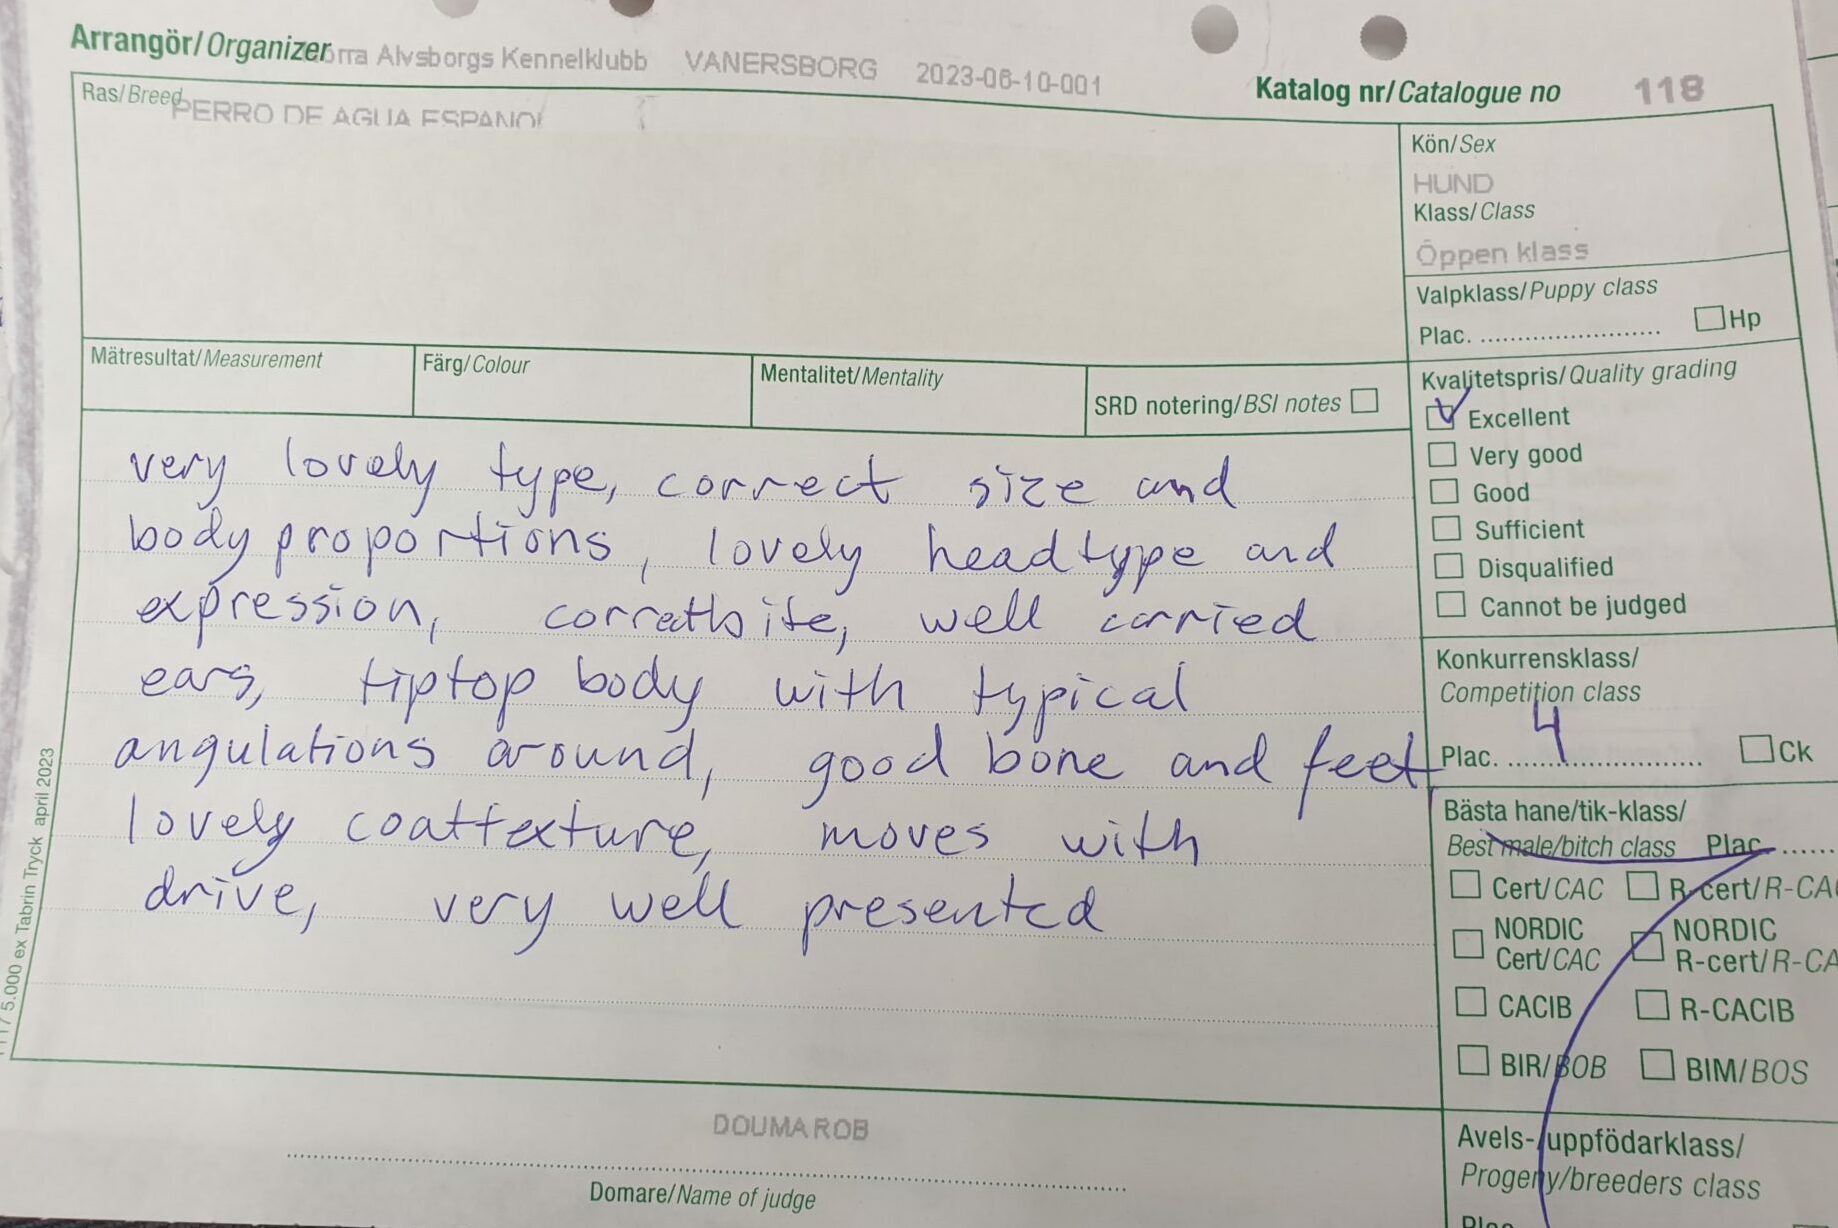 Arrangör/Organizer orra Alvsborgs Kennelklubb VANERSBORG 2023-06-10-001
Katalog nr/Catalogue no 118
Ras/Breed PERRO DE AGUA ESPANOL
Kön/Sex
HUND
Klass/Class
Öppen klass
Valpklass/Puppy class
Plac. Hp
Mätresultat/Measurement
Färg/Colour
Mentalitet/Mentality
SRD notering/BSI notes
Kvalitetspris/Quality grading
Excellent
Very good
Good
Sufficient
Disqualified
Cannot be judged
very lovely type, correct size and
body proportions, lovely headtype and
expression, correctbite, well carried
ears, tiptop body with typical
angulations around, good bone and feet
lovely coattexture, moves with
drive, very well presented
Konkurrensklass/
Competition class
Plac. 4 Ck
Bästa hane/tik-klass/
Best male/bitch class Plac.
Cert/CAC R-cert/R-CA
NORDIC NORDIC
Cert/CAC R-cert/R-CA
CACIB R-CACIB
BIR/BOB BIM/BOS
Avels-/uppfödarklass/
Progeny/breeders class
Plac
DOUMA ROB
Domare/Name of judge
5.000 ex Tabrin Tryck april 2023